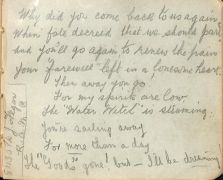 Why did you come back to us again
When fate decreed that we should part
and you'll go again to renew the pain
Your "Farewell" left in a lonesome heart
Then away you go
For my spirits are low
The "Water Witch" is steaming
You're sailing away
For more than a day
The "Goods" gone! but — I'll be dreaming